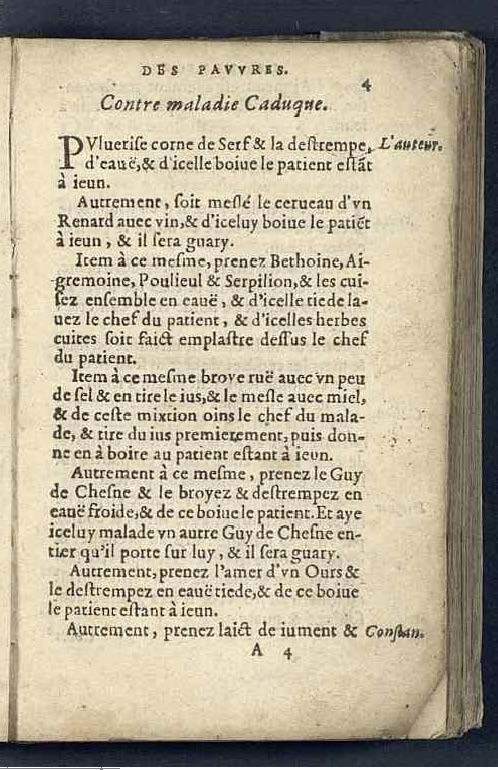 DES PAVVRES.
4
Contre maladie Caduque.
PVluerise corne de Serf & la destrempe, L'auteur.
d'eauë,& d'icelle boiue le patient estãt
à ieun.
Autrement, soit meslé le cerueau d'vn
Renard auec vin,& d'iceluy boiue le patiẽt
à ieun, & il sera guary.
Item à ce mesme, prenez Bethoine, Ai-
gremoine, Poulieul & Serpilion,& les cui-
sez ensemble en eauë, & d'icelle tiede la-
uez le chef du patient, & d'icelles herbes
cuites soit faict emplastre dessus le chef
du patient.
Item à ce mesme broye ruë auec vn peu
de sel & en tire le ius,& le mesle auec miel,
& de ceste mixtion oins le chef du mala-
de, & tire du ius premierement, puis don-
ne en à boire au patient estant à ieun.
Autrement à ce mesme, prenez le Guy
de Chesne & le broyez & destrempez en
eauë froide,& de ce boiue le patient. Et aye
iceluy malade vn autre Guy de Chesne en-
tier qu'il porte sur luy, & il sera guary.
Autrement, prenez l'amer d'vn Ours &
le destrempez en eauë tiede,& de ce boiue
le patient estant à ieun.
Autrement, prenez laict de iument & Constan.
A 4